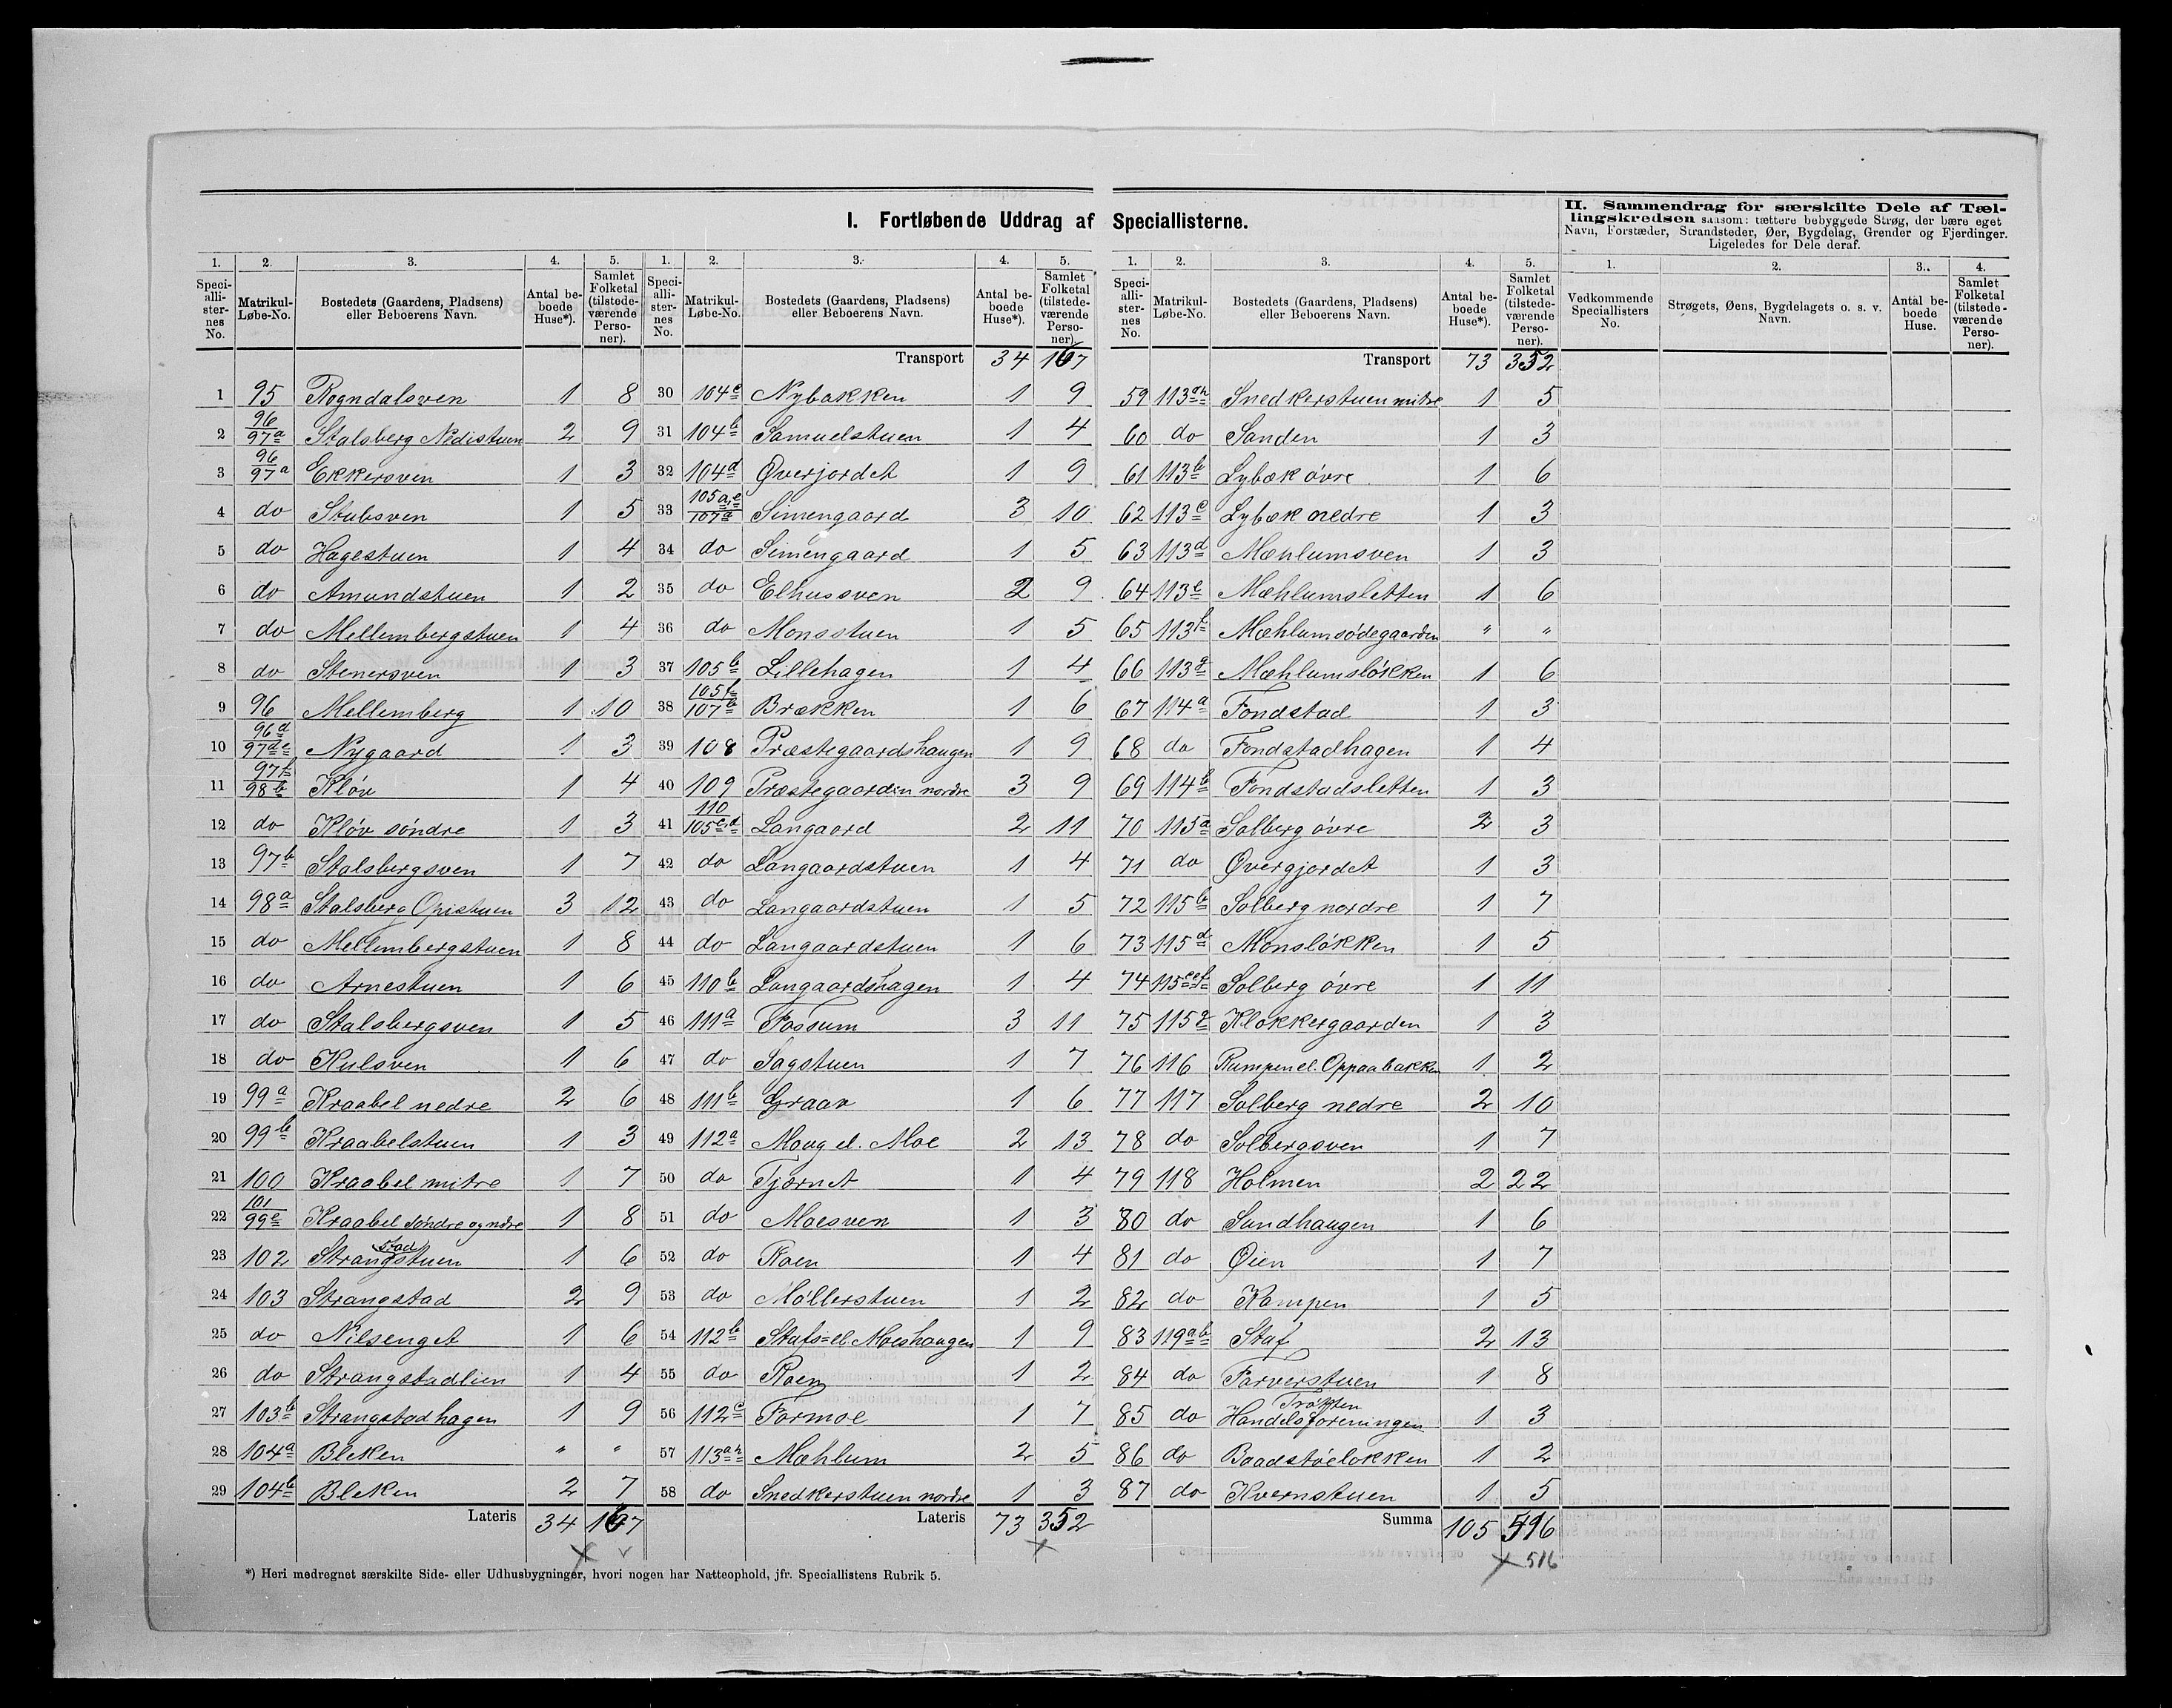 I. Fortløbende Uddrag af Speciallisterne.
1. 2. 3. 4. 5.
Speciallisternes No. Matrikul-Løbe-No. Bostedets (Gaardens, Pladsens) eller Beboerens Navn. Antal beboede Huse*). Samlet Folketal (tilstedeværende Personer).
1 95 Rogndalsven 1 8
2 96/97a Stalsberg Nedistuen 2 9
3 96/97a Ekkersven 1 3
4 do Stubsven 1 5
5 do Hagestuen 1 4
6 do Amundstuen 1 2
7 do Mellembergstuen 1 4
8 do Stenersven 1 3
9 96 Mellemberg 1 10
10 96d/97de Nygaard 1 3
11 97f/98b Kløv 1 4
12 do Kløv søndre 1 3
13 97b Stalsbergsven 1 7
14 98a Stalsberg Opistuen 3 12
15 do Mellembergstuen 1 8
16 do Arnestuen 1 6
17 do Stalsbergsven 1 5
18 do Kulsven 1 6
19 99a Kraabel nedre 2 6
20 99b Kraabelstuen 1 3
21 100 Kraabel mitre 1 7
22 101/99c Kraabel søndre og ndre 1 8
23 102 Strangstadstuen 1 6
24 103 Strangstad 2 9
25 do Nilsenget 1 6
26 do Strangstadlien 1 4
27 103b Strangstadhagen 1 9
28 104a Bleken " "
29 104b Bleken 2 7
Lateris 34 167
1. 2. 3. 4. 5.
Speciallisternes No. Matrikul-Løbe-No. Bostedets (Gaardens, Pladsens) eller Beboerens Navn. Antal beboede Huse*). Samlet Folketal (tilstedeværende Personer).
Transport 34 167
30 104c Nybakken 1 9
31 104b Samuelstuen 1 4
32 104d Øverjordet 1 9
33 105a,e/107a Simengaard 3 10
34 do Simengaard 1 5
35 do Elhusven 2 9
36 do Monsstuen 1 5
37 105b Lillehagen 1 4
38 105f/107b Brækken 1 6
39 108 Præstegaardshaugen 1 9
40 109 Præstegaarden nordre 3 9
41 110/105c,d Langaard 2 11
42 do Langaardstuen 1 4
43 do Langaardstuen 1 5
44 do Langaardstuen 1 6
45 110b Langaardshagen 1 4
46 111a Fossum 3 11
47 do Sagstuen 1 7
48 111b Graav 1 6
49 112a Moug el. Moe 2 13
50 do Tjernet 1 4
51 do Moesven 1 3
52 do Roen 1 4
53 do Møllerstuen 1 2
54 112b Stafs= el. Moeshaugen 1 9
55 do Roen 1 2
56 112c Formoe 1 7
57 113ah Mæhlum 2 5
58 do Snedkerstuen nordre 1 3
Lateris 73 352
1. 2. 3. 4. 5.
Speciallisternes No. Matrikul-Løbe-No. Bostedets (Gaardens, Pladsens) eller Beboerens Navn. Antal beboede Huse*). Samlet Folketal (tilstedeværende Personer).
Transport 73 352
59 113ah Snedkerstuen mitre 1 5
60 do Sanden 1 3
61 113b Lybæk øvre 1 6
62 113c Lybæk nedre 1 3
63 113d Mæhlumsven 1 3
64 113e Mæhlumsletten 1 6
65 113f Mæhlumsødegaarden " "
66 113g Mæhlumsløkken 1 6
67 114a Fondstad 1 3
68 do Fondstadhagen 1 4
69 114b Fondstadsletten 1 3
70 115a Solberg øvre 2 3
71 do Øvergjordet 1 3
72 115b Solberg nordre 1 7
73 115d Monsløkken 1 5
74 115cef Solberg øvre 1 11
75 115g Klokkergaarden 1 3
76 116 Rumpen el. Oppaabakken 1 2
77 117 Solberg nedre 2 10
78 do Solbergsven 1 7
79 118 Holmen 2 22
80 do Sandhaugen 1 6
81 do Øien 1 7
82 do Kampen 1 5
83 119ab Staf 2 13
84 do Farverstuen 1 8
85 do Handelsforeningen 1 3
86 do Baadstøeløkken 1 2
87 do Kvernstuen 1 5
Summa 105 516
516
II. Sammendrag for særskilte Dele af Tællingskredsen saasom: tættere bebyggede Strøg, der bære eget Navn, Forstæder, Strandsteder, Øer, Bygdelag, Grender og Fjerdinger. Ligeledes for Dele deraf.
1. 2. 3. 4.
Vedkommende Speciallisters No. Strøgets, Øens, Bygdelagets o. s. v. Navn. Antal beboede Huse. Samlet Folketal (tilstedeværende Personer).
*) Heri medregnet særskilte Side- eller Udhusbygninger, hvori nogen har Natteophold, jfr. Speciallistens Rubrik 5.